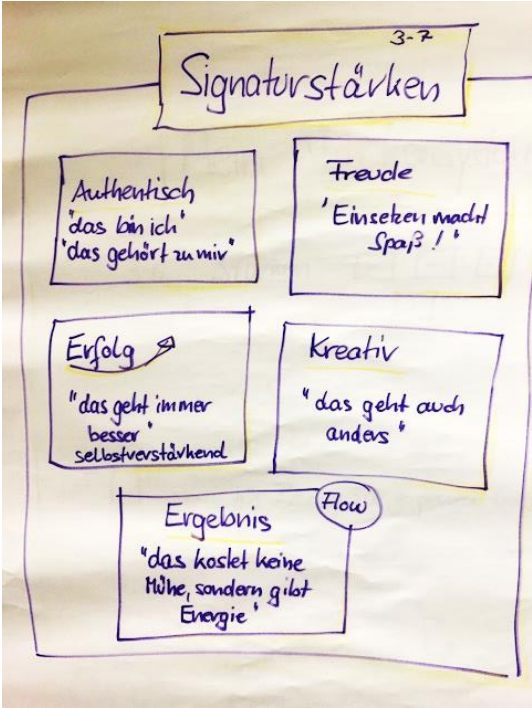 3-7
Signaturstärken
Authentisch
"das bin ich"
"das gehört zu mir"
Freude
"Einsetzen macht
Spaß!"
Erfolg
"das geht immer
besser"
selbstverstärkend
Kreativ
"das geht auch
anders"
Flow
Ergebnis
"das kostet keine
Mühe, sondern gibt
Energie"